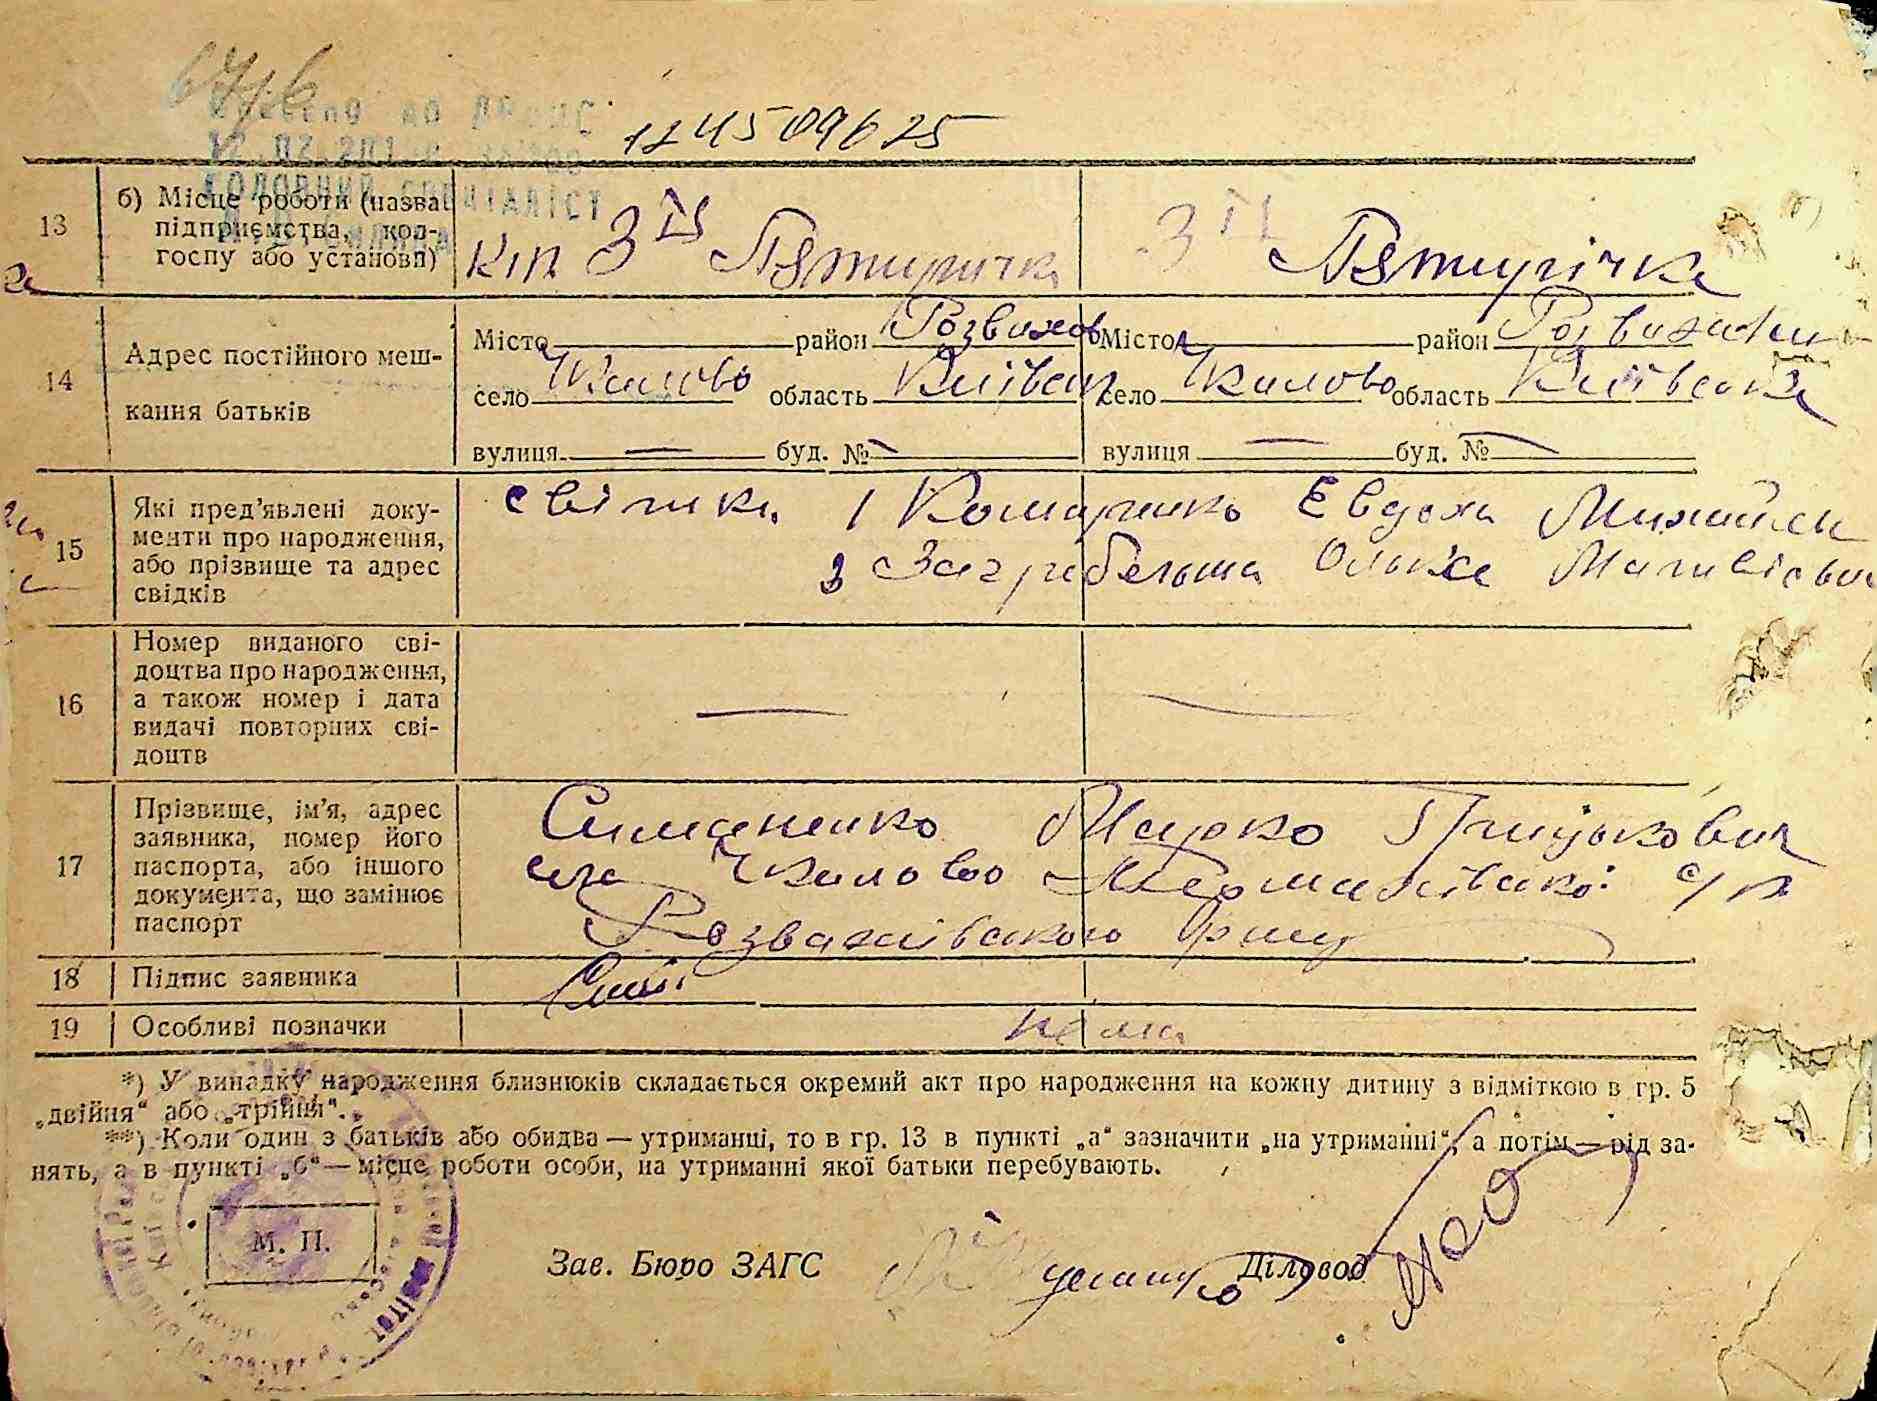 124509625
13 б) Місце роботи (назва підприємства, кол-госпу або установи) кіп 3 Пятирічка 3 Пятирічка
14 Адрес постійного меш-кання батьків
Місто район Розважов Місто район
село Чкалово область Київськ село Чкалово область Київська
вулиця — буд. № вулиця — буд. №
15 Які пред'явлені доку-менти про народження, або прізвище та адрес свідків
свідки 1 Евдоха
Загребельна Ольжа
16 Номер виданого сві-доцтва про народження, а також номер і дата видачі повторних сві-доцтв — —
17 Прізвище, ім'я, адрес заявника, номер його паспорта, або іншого документа, що замінює паспорт
Симоненко Марко Грицькович
села Чкалово с/р
Розважівського р-ну
18 Підпис заявника
19 Особливі позначки нема
*) У випадку народження близнюків складається окремий акт про народження на кожну дитину з відміткою в гр. 5
„двійня“ або „трійня“.
**) Коли один з батьків або обидва — утриманці, то в гр. 13 в пункті „а“ зазначити „на утриманні“, а потім — рід за-
нять, а в пункті „б“ — місце роботи особи, на утриманні якої батьки перебувають.
М. П.
Зав. Бюро ЗАГС Діловод